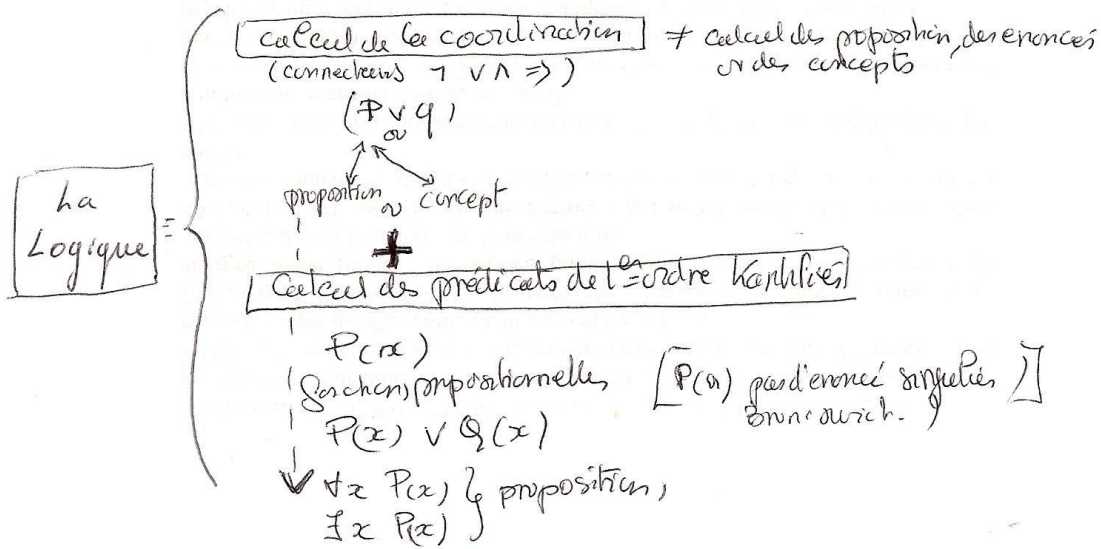 calcul de la coordination ≠ calcul des proposition, des enoncés
ou des concepts
(connecteurs ¬ ∨ ∧ ⇒)
(P ∨ q)
ou
proposition ou concept
La
Logique =
+
Calcul des prédicats de 1er ordre kantifiés
P(x)
fonctions propositionnelles
[P(a) pas d'enoncé singulier]
P(x) ∨ Q(x)
∀x P(x) } propositions
∃x P(x)